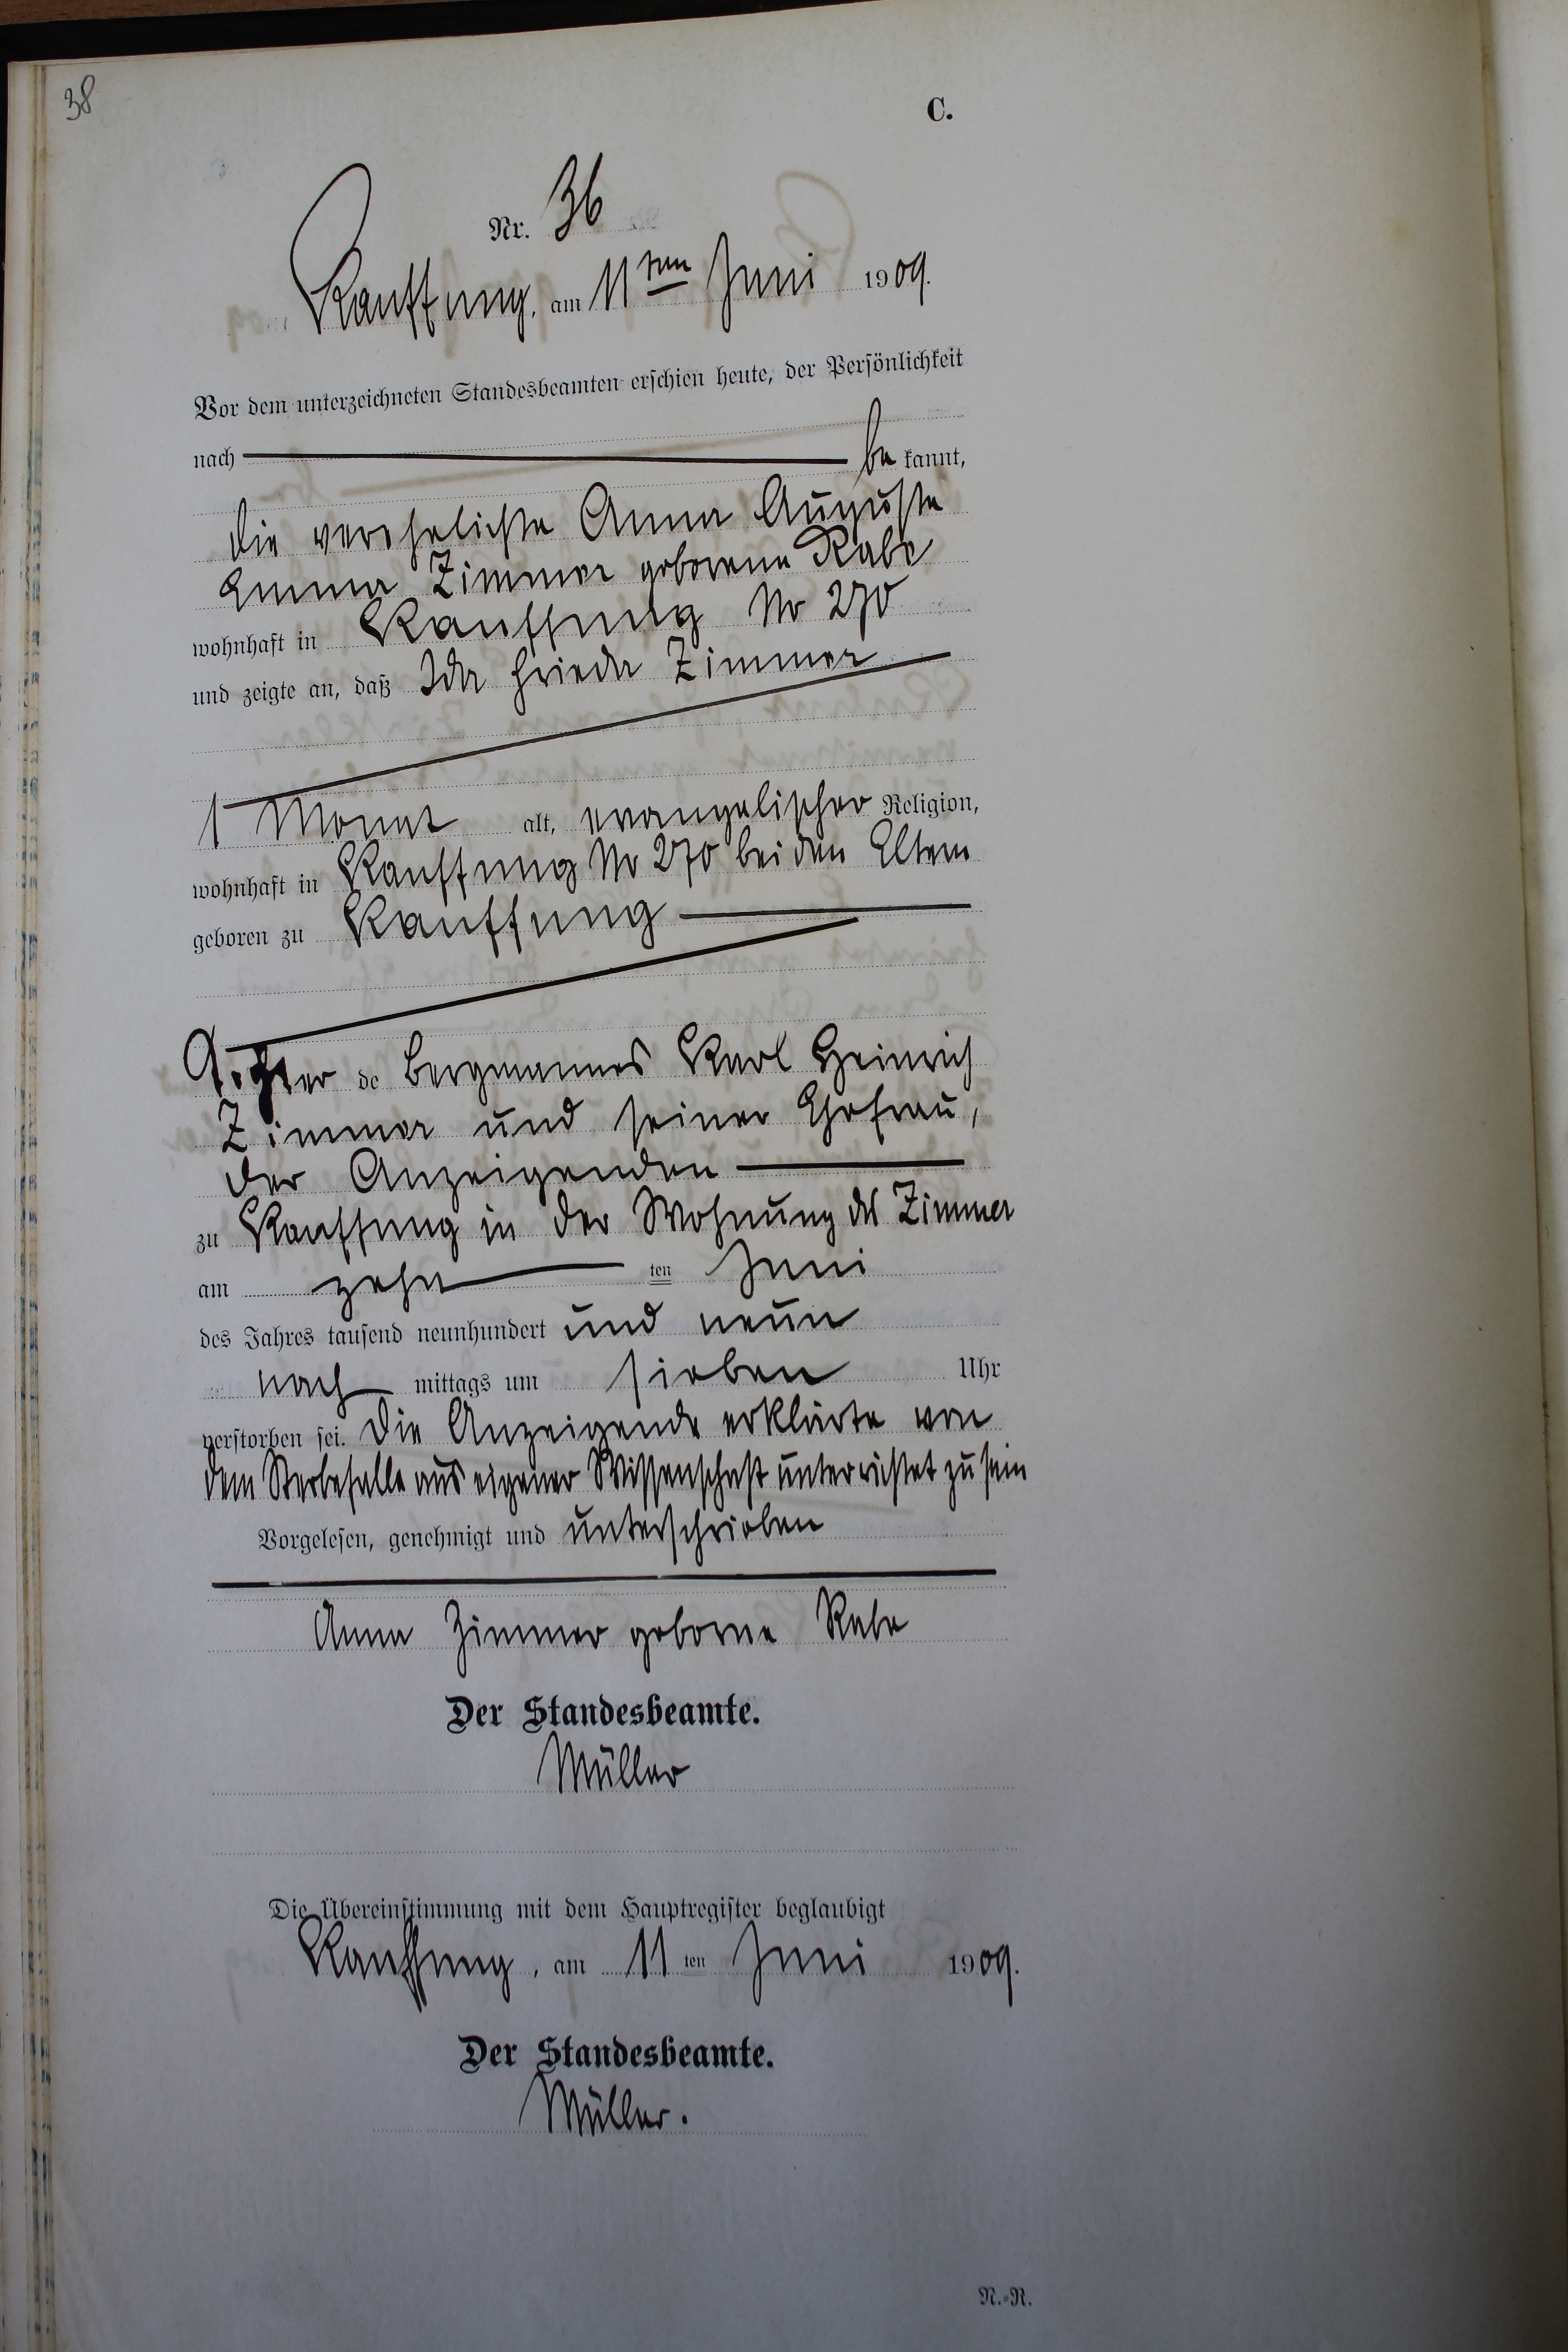 38
C.
Nr. 36
Kauffung, am 11ten Juni 1909.
Vor dem unterzeichneten Standesbeamten erschien heute, der Persönlichkeit
nach be kannt,
die verehelichte Anna Auguste
Emma Zimmer geborene Rabe
wohnhaft in Kauffung No 270
und zeigte an, daß Ida Frieda Zimmer
1 Monat alt, evangelischer Religion,
wohnhaft in Kauffung No 270 bei den Eltern
geboren zu Kauffung
Tochter de Bergmannes Karl Heinrich
Zimmer und seiner Ehefrau,
der Anzeigenden
zu Kauffung in der Wohnung des Zimmer
am zehn ten Juni
des Jahres tausend neunhundert und neun
nach mittags um sieben Uhr
verstorben sei. Die Anzeigende erklärte von
dem Sterbefalle aus eigener Wissenschaft unterrichtet zu sein
Vorgelesen, genehmigt und unterschrieben
Anna Zimmer geborne Rabe
Der Standesbeamte.
Müller
Die Übereinstimmung mit dem Hauptregister beglaubigt
Kauffung, am 11 ten Juni 1909.
Der Standesbeamte.
Müller.
N.-R.